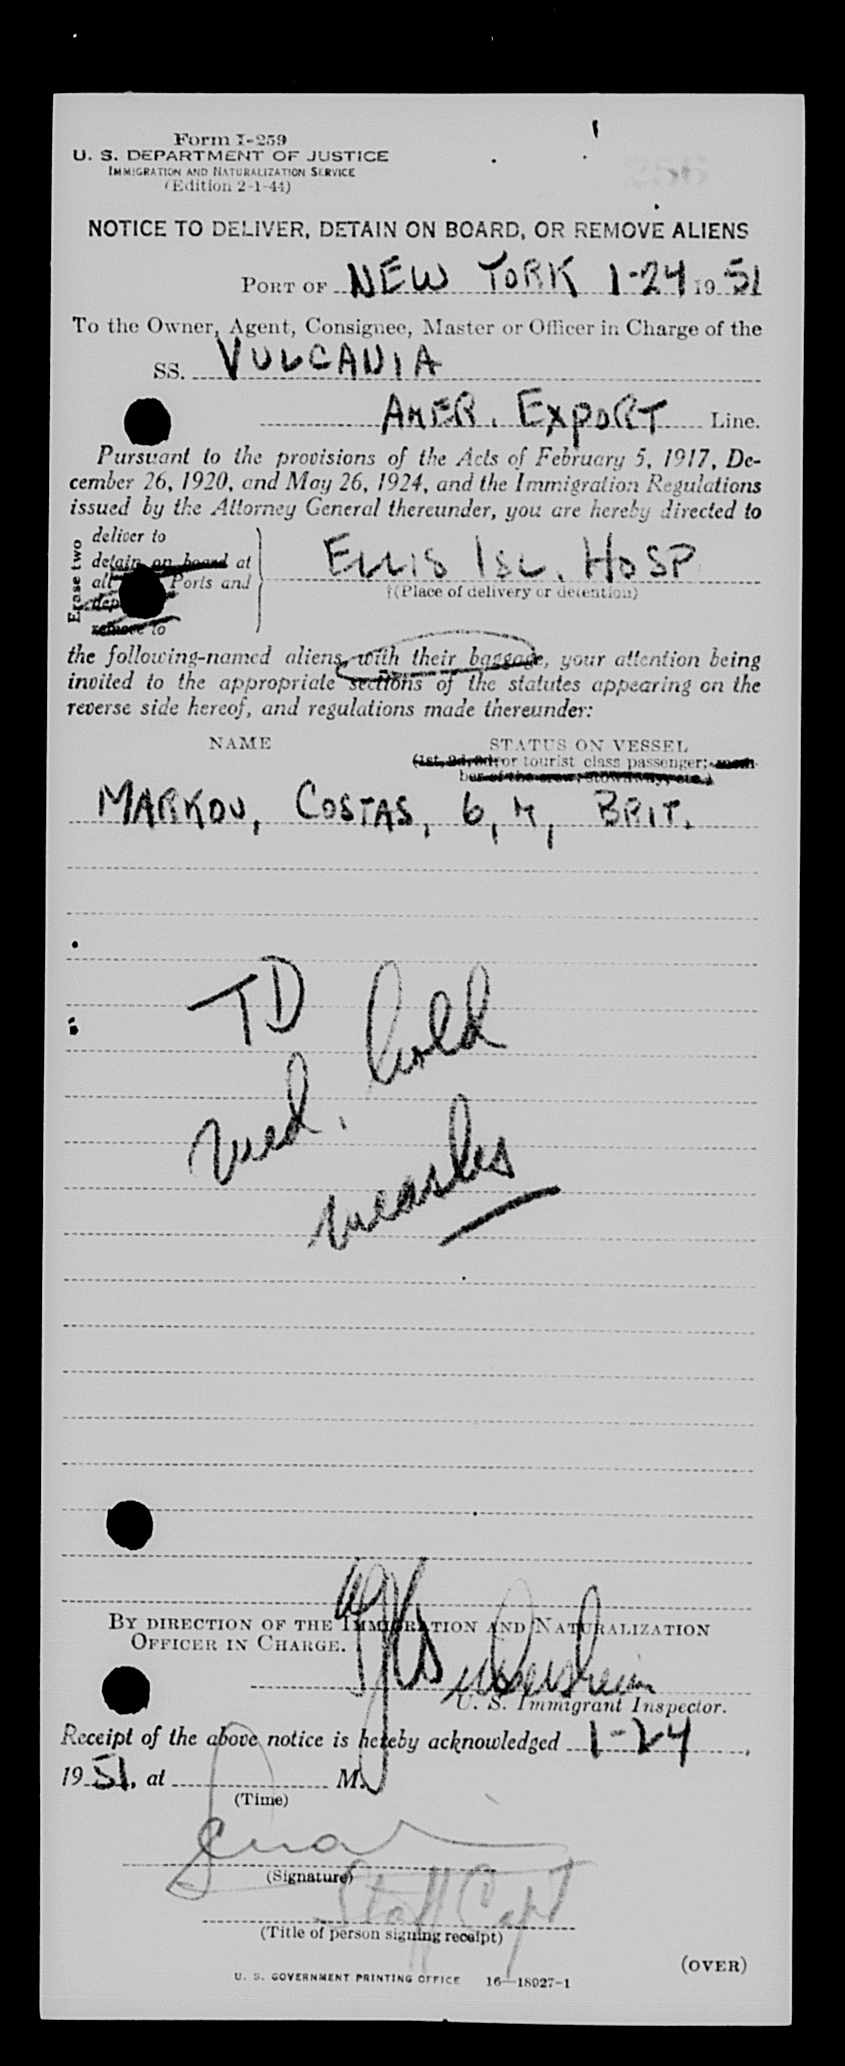 Form I-259
U. S. DEPARTMENT OF JUSTICE
IMMIGRATION AND NATURALIZATION SERVICE
(Edition 2-1-44)
NOTICE TO DELIVER, DETAIN ON BOARD, OR REMOVE ALIENS
PORT OF NEW YORK 1-24 19 51
To the Owner, Agent, Consignee, Master or Officer in Charge of the
SS. VULCANIA
AMER. EXPORT Line.
Pursuant to the provisions of the Acts of February 5, 1917, De-
cember 26, 1920, and May 26, 1924, and the Immigration Regulations
issued by the Attorney General thereunder, you are hereby directed to
Erase two
deliver to
detain on board at
all Ports and
remove to
ELLIS ISL. HOSP
(Place of delivery or detention)
the following-named aliens, with their baggage, your attention being
invited to the appropriate sections of the statutes appearing on the
reverse side hereof, and regulations made thereunder:
NAME STATUS ON VESSEL
(1st, 2d, 3d, or tourist class passenger; mem-
ber of the crew; stowaway, etc.)
MARKOU, COSTAS, 6, M, BRIT.
TD
med. hold
measles
BY DIRECTION OF THE IMMIGRATION AND NATURALIZATION
OFFICER IN CHARGE.
U. S. Immigrant Inspector.
Receipt of the above notice is hereby acknowledged 1-24,
19 51, at M.
(Time)
(Signature)
Staff Capt
(Title of person signing receipt)
(OVER)
U. S. GOVERNMENT PRINTING OFFICE 16—18027-1